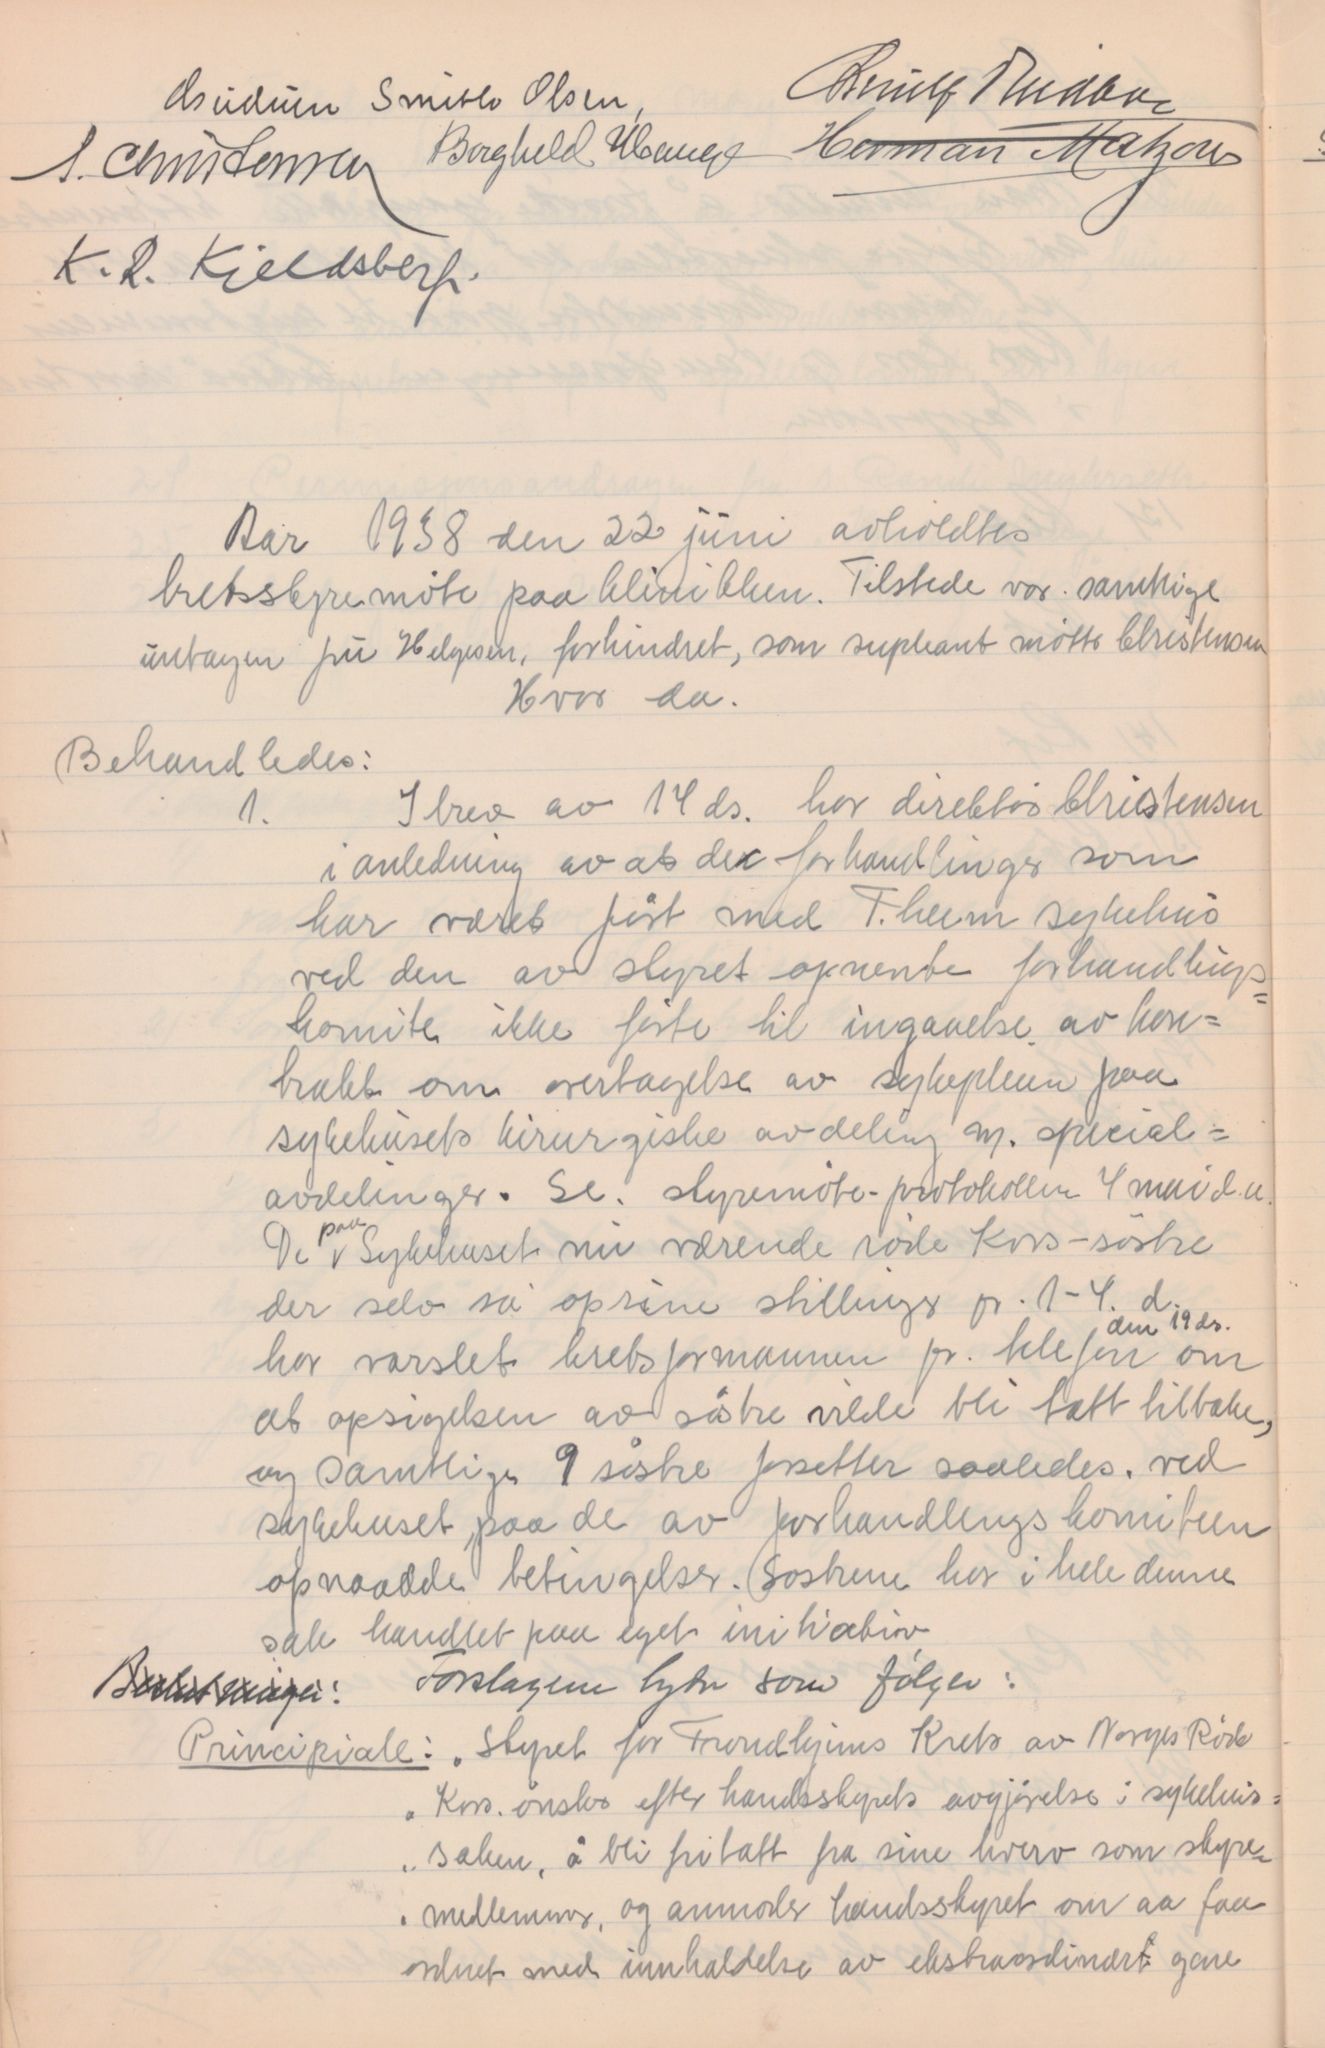 Smith Olsen,
S. Christensen Borghild Hauge Herman Matzow
K. R. Kjeldsberg.
Aar 1938 den 22 juni avholdtes
kretsstyremöte paa klinikken. Tilstede var samtlige
untagen fru Helgesen, forhindret, som supleant mötte Christensen
Hvor da.
Behandledes:
1. I brev av 14 ds. har direktör Christensen
i anledning av at de forhandlinger som
har været fört med T.heim sykehus
ved den av styret opnevnte forhandlings=
komite ikke förte til ingaaelse av kon=
trakt om overtagelse av sykepleien paa
sykehusets kirurgiske avdeling m. special=
avdelinger. Se. styremöte-protokollen 4 mai d.a.
De paa Sykehuset nu værende röde Kors-söstre
der selv sa op sine stillinger pr. 1-4. d.
har varslet kretsformannen pr. telefon den 19 ds. om
at opsigelsen av söstre vilde bli tatt tilbake,
og samtlige 9 söstre forsetter saaledes ved
sykehuset, paa de av forhandlingskomiteen
opnaadde betingelser. Söstrene har i hele denne
sak handlet paa eget initiativ
Forslagene lyder som følger:
Principiale: „Styret for Trondhjems Krets av Norges Röde
„Kors önsker efter handsstyrets avgjörelse i sykehus=
„saken, å bli fritatt fra sine hverv som styre=
„medlemmer, og anmoder handsstyret om aa faa
ordnet med innkaldelse av ekstraordinært gene